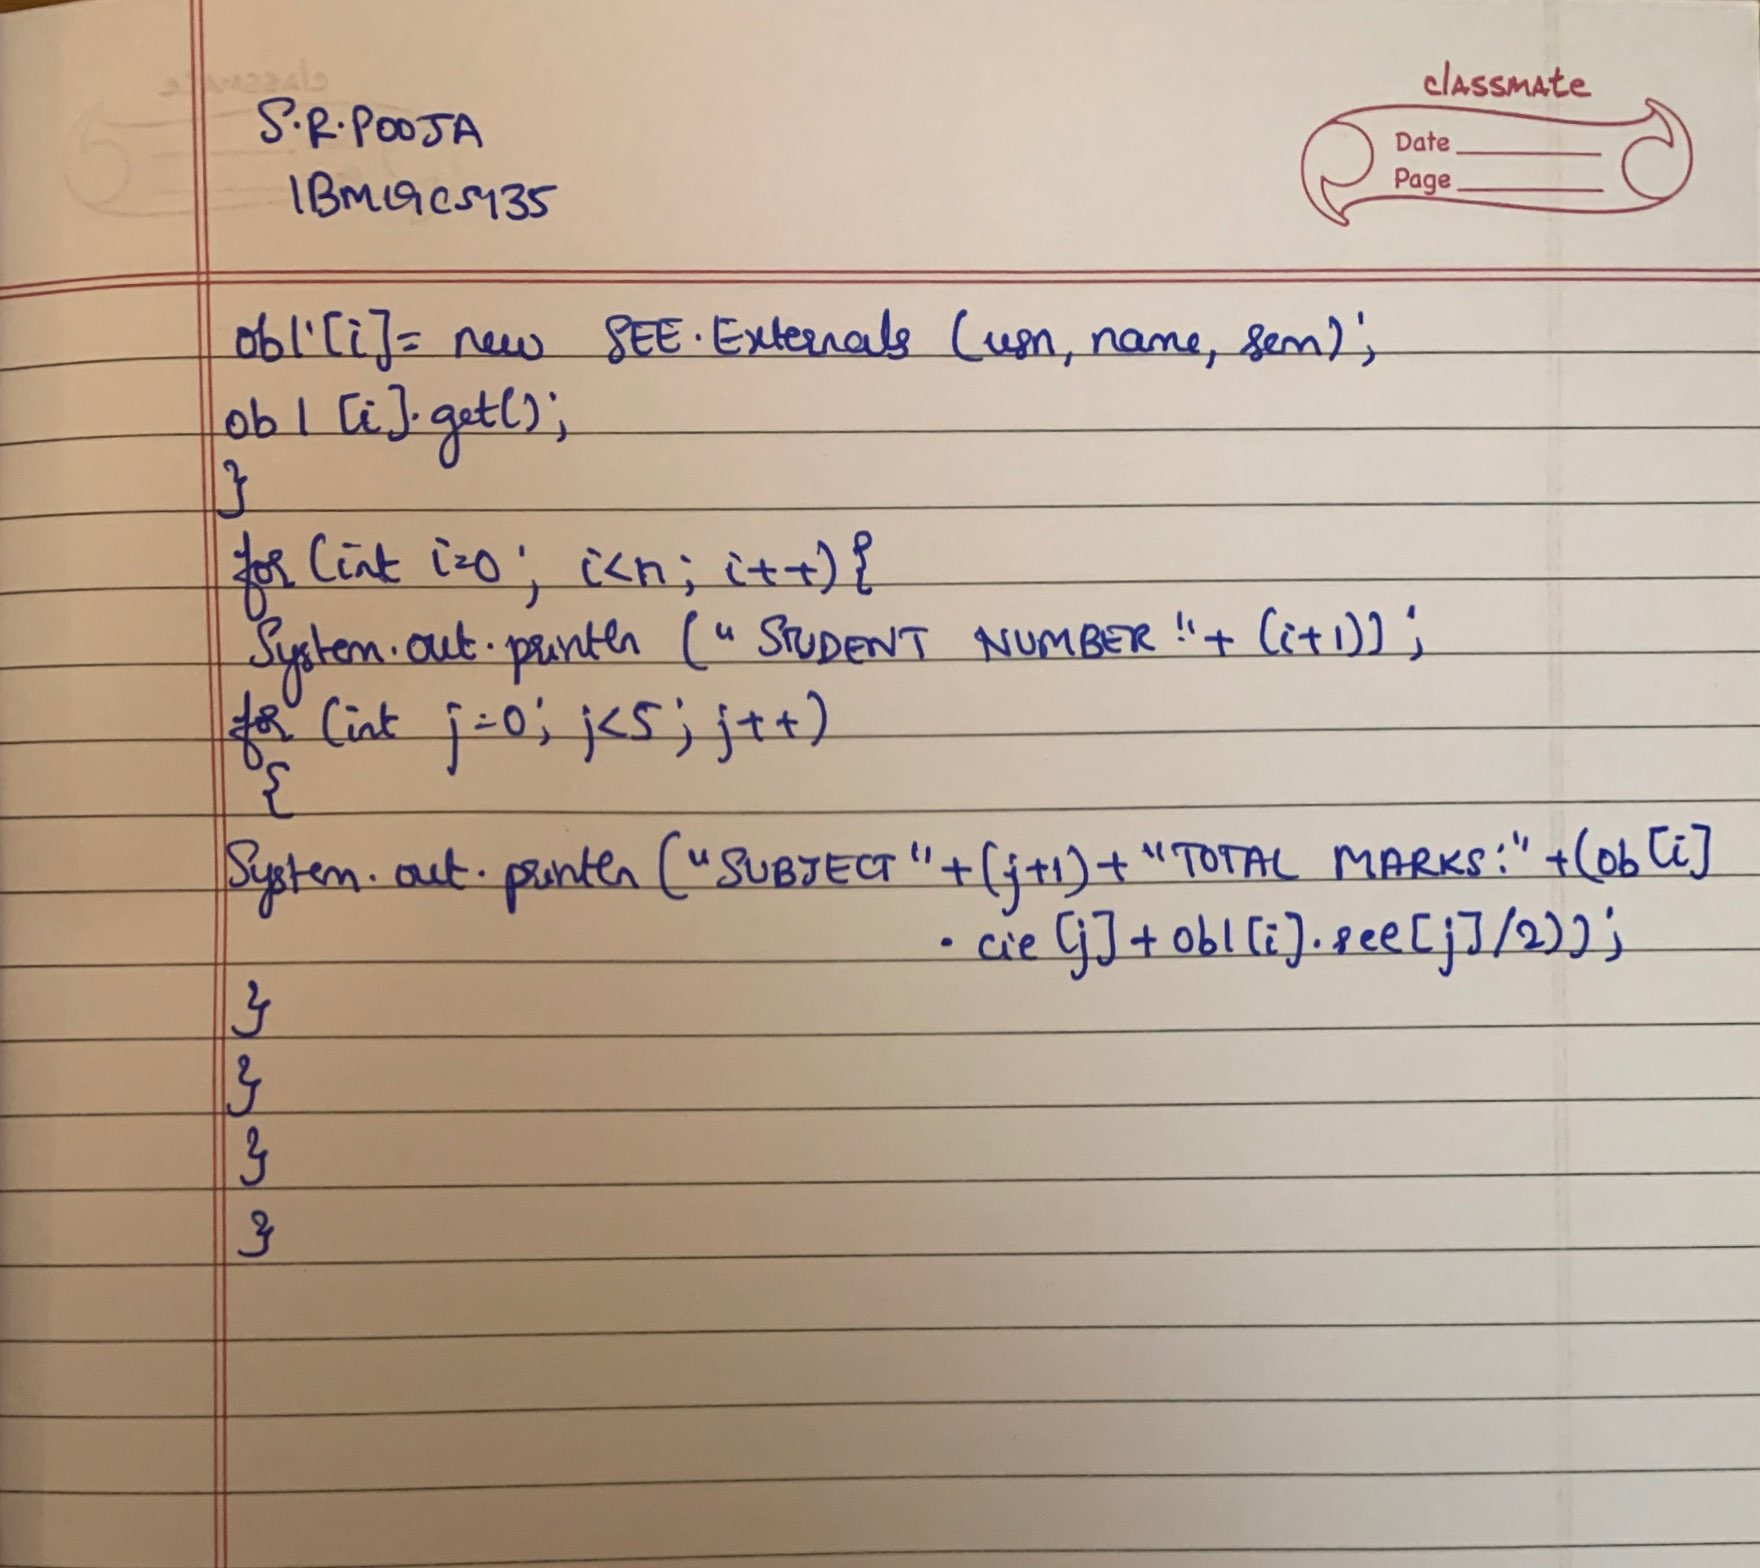 classmate
Date
Page
S.R.POOJA
1BM19CS135
ob1[i]= new SEE.Externals (usn, name, sem);
ob1 [i].get();
}
for (int i=0; i<n; i++) {
System.out.println ("STUDENT NUMBER:"+ (i+1));
for (int j=0; j<5; j++)
{
System.out.println ("SUBJECT"+(j+1)+"TOTAL MARKS:"+(ob[i]
.cie[j]+ob1[i].see[j]/2));
}
}
}
}